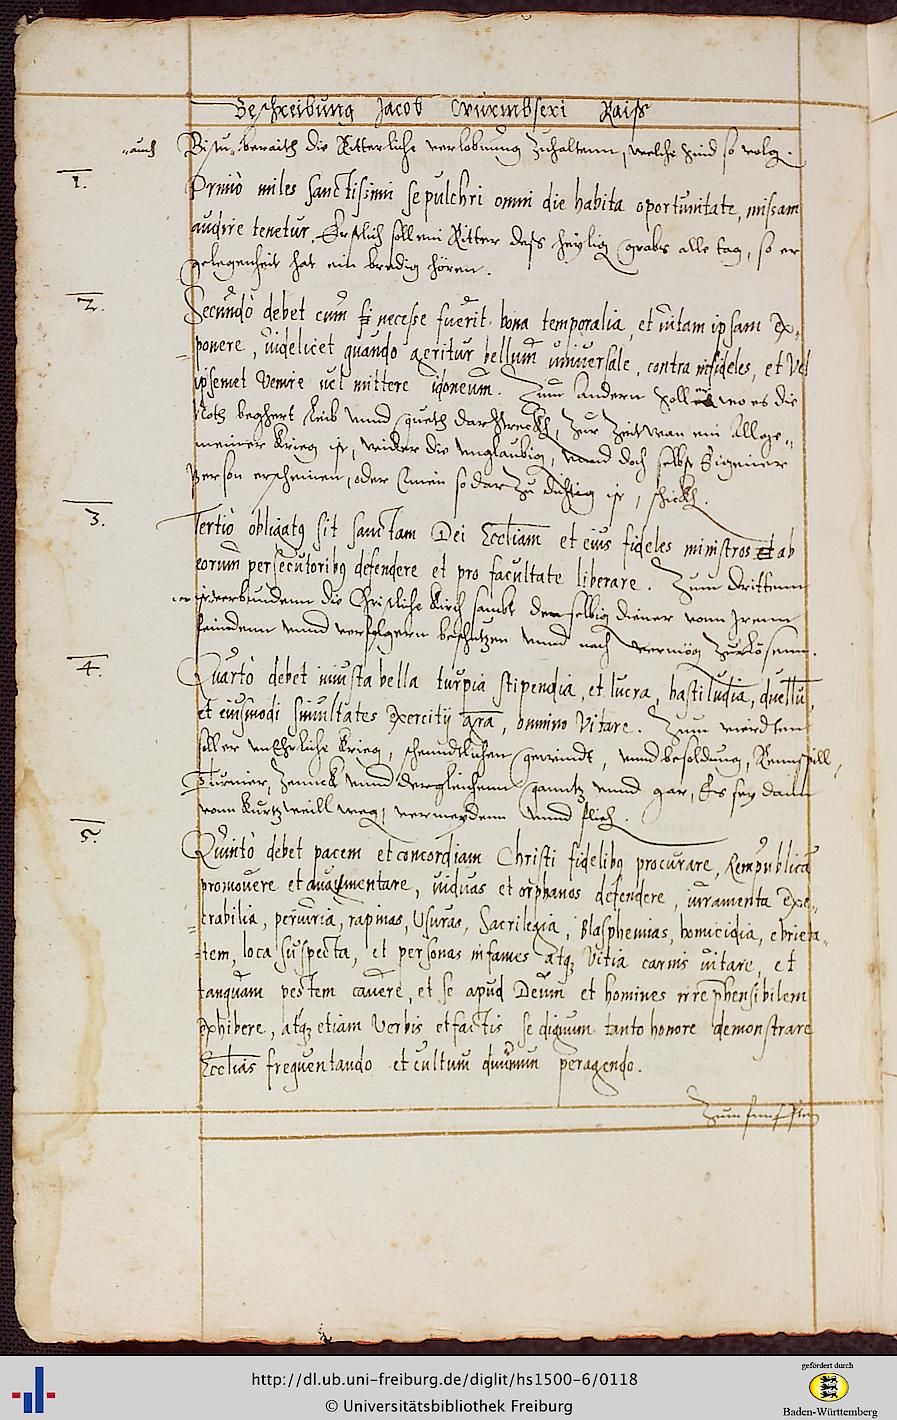 Beschreibung Jacob Wurmbseri Raiß
„auch Bistu „ beraith die Ritterliche verlobnung zuhaltenn, welche sind so volg.
1.
Primò miles sanctissimi sepulchri omni die habita oportunitate, missam
audire tenetur. Erstlich soll ein Ritter deß heylig grabs alle tag, so er
gelegenheit hat ein bredig hören.
2.
Secundò debet cum necesse fuerit bona temporalia, et vitam ipsam ex-
ponere, videlicet quando geritur bellum universale, contra infideles, et vel
ipsemet venire vel mittere idoneum. Zum andern soll er wo es die
Noth beghert Leib unnd gueth darstreckh, zur Zeit wan ein Allge-
meiner Krieg ist, wider die unglaubig, unnd doch selbst Eigener
Person erscheinen, oder Einen so darzu duchtig ist, schickh.
3.
Tertiò obligatq sit sanctam Dei Eccliam et eius fideles ministros ab
eorum persecutoribq defendere et pro facultate liberare. Zum drittenn
ist er verbundenn die Christliche Kirch sambt derselbig diener vonn Jrenn
feindenn unnd verfolgern beschutzen unnd nach vermög zuerlösenn.
4.
Quartò debet iniusta bella turpia stipendia, et lucra, hastiludia, duellu,
et eiusmodi simultates exercitij gra, omnino vitare. Zum vierdten
soll er unehrliche Krieg, schendtlichen gewindt, unnd besoldung, Rennspill,
Turnier, Zannck unnd dergleichenn ganntz unnd gar, Es sey dann
vonn Kurtzweill weg, vermeydenn unnd flieh.
5.
Quintò debet pacem et concordiam Christi fidelibq procurare, Rempublica
promovere et augmentare, viduas et orphanos defendere, iuramenta exe-
crabilia, periuria, rapinas, Usuras, Sacrilegia, Blasphemias, homicidia, ebrieta-
tem, loca suspecta, et personas infames atq vitia carnis vitare, et
tanquam pestem cavere, et se apud Deum et homines irreprhensibilem
exhibere, atq etiam verbis et factis se dignum tanto honore demonstrare
Ecclias frequentando et cultum divinum peragendo.
Zum funfften
http://dl.ub.uni-freiburg.de/diglit/hs1500-6/0118
© Universitätsbibliothek Freiburg
gefördert durch
Baden-Württemberg